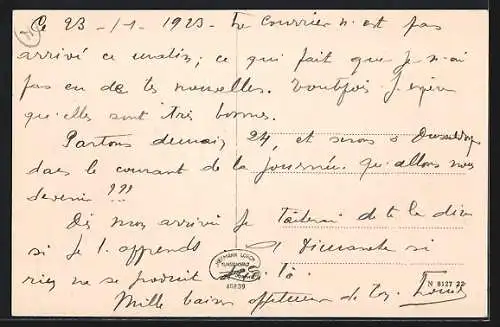 Ce 23 - /1 - 1923 - Le courrier n'est pas
arrivé ce matin; ce qui fait que je n'ai
pas eu de tes nouvelles. Toutefois j'espère
qu'elles sont très bonnes.
Partons demain 24, et serons à Dusseldorf
dans le courant de la journée. Qu'allons nous
devenir ???
Dès mon arrivée je tâcherai de te le dire
si je l'apprends. A Dimanche si
rien ne se produit d'ici là.
Mille baisers affectueux de ton
N 8127 22